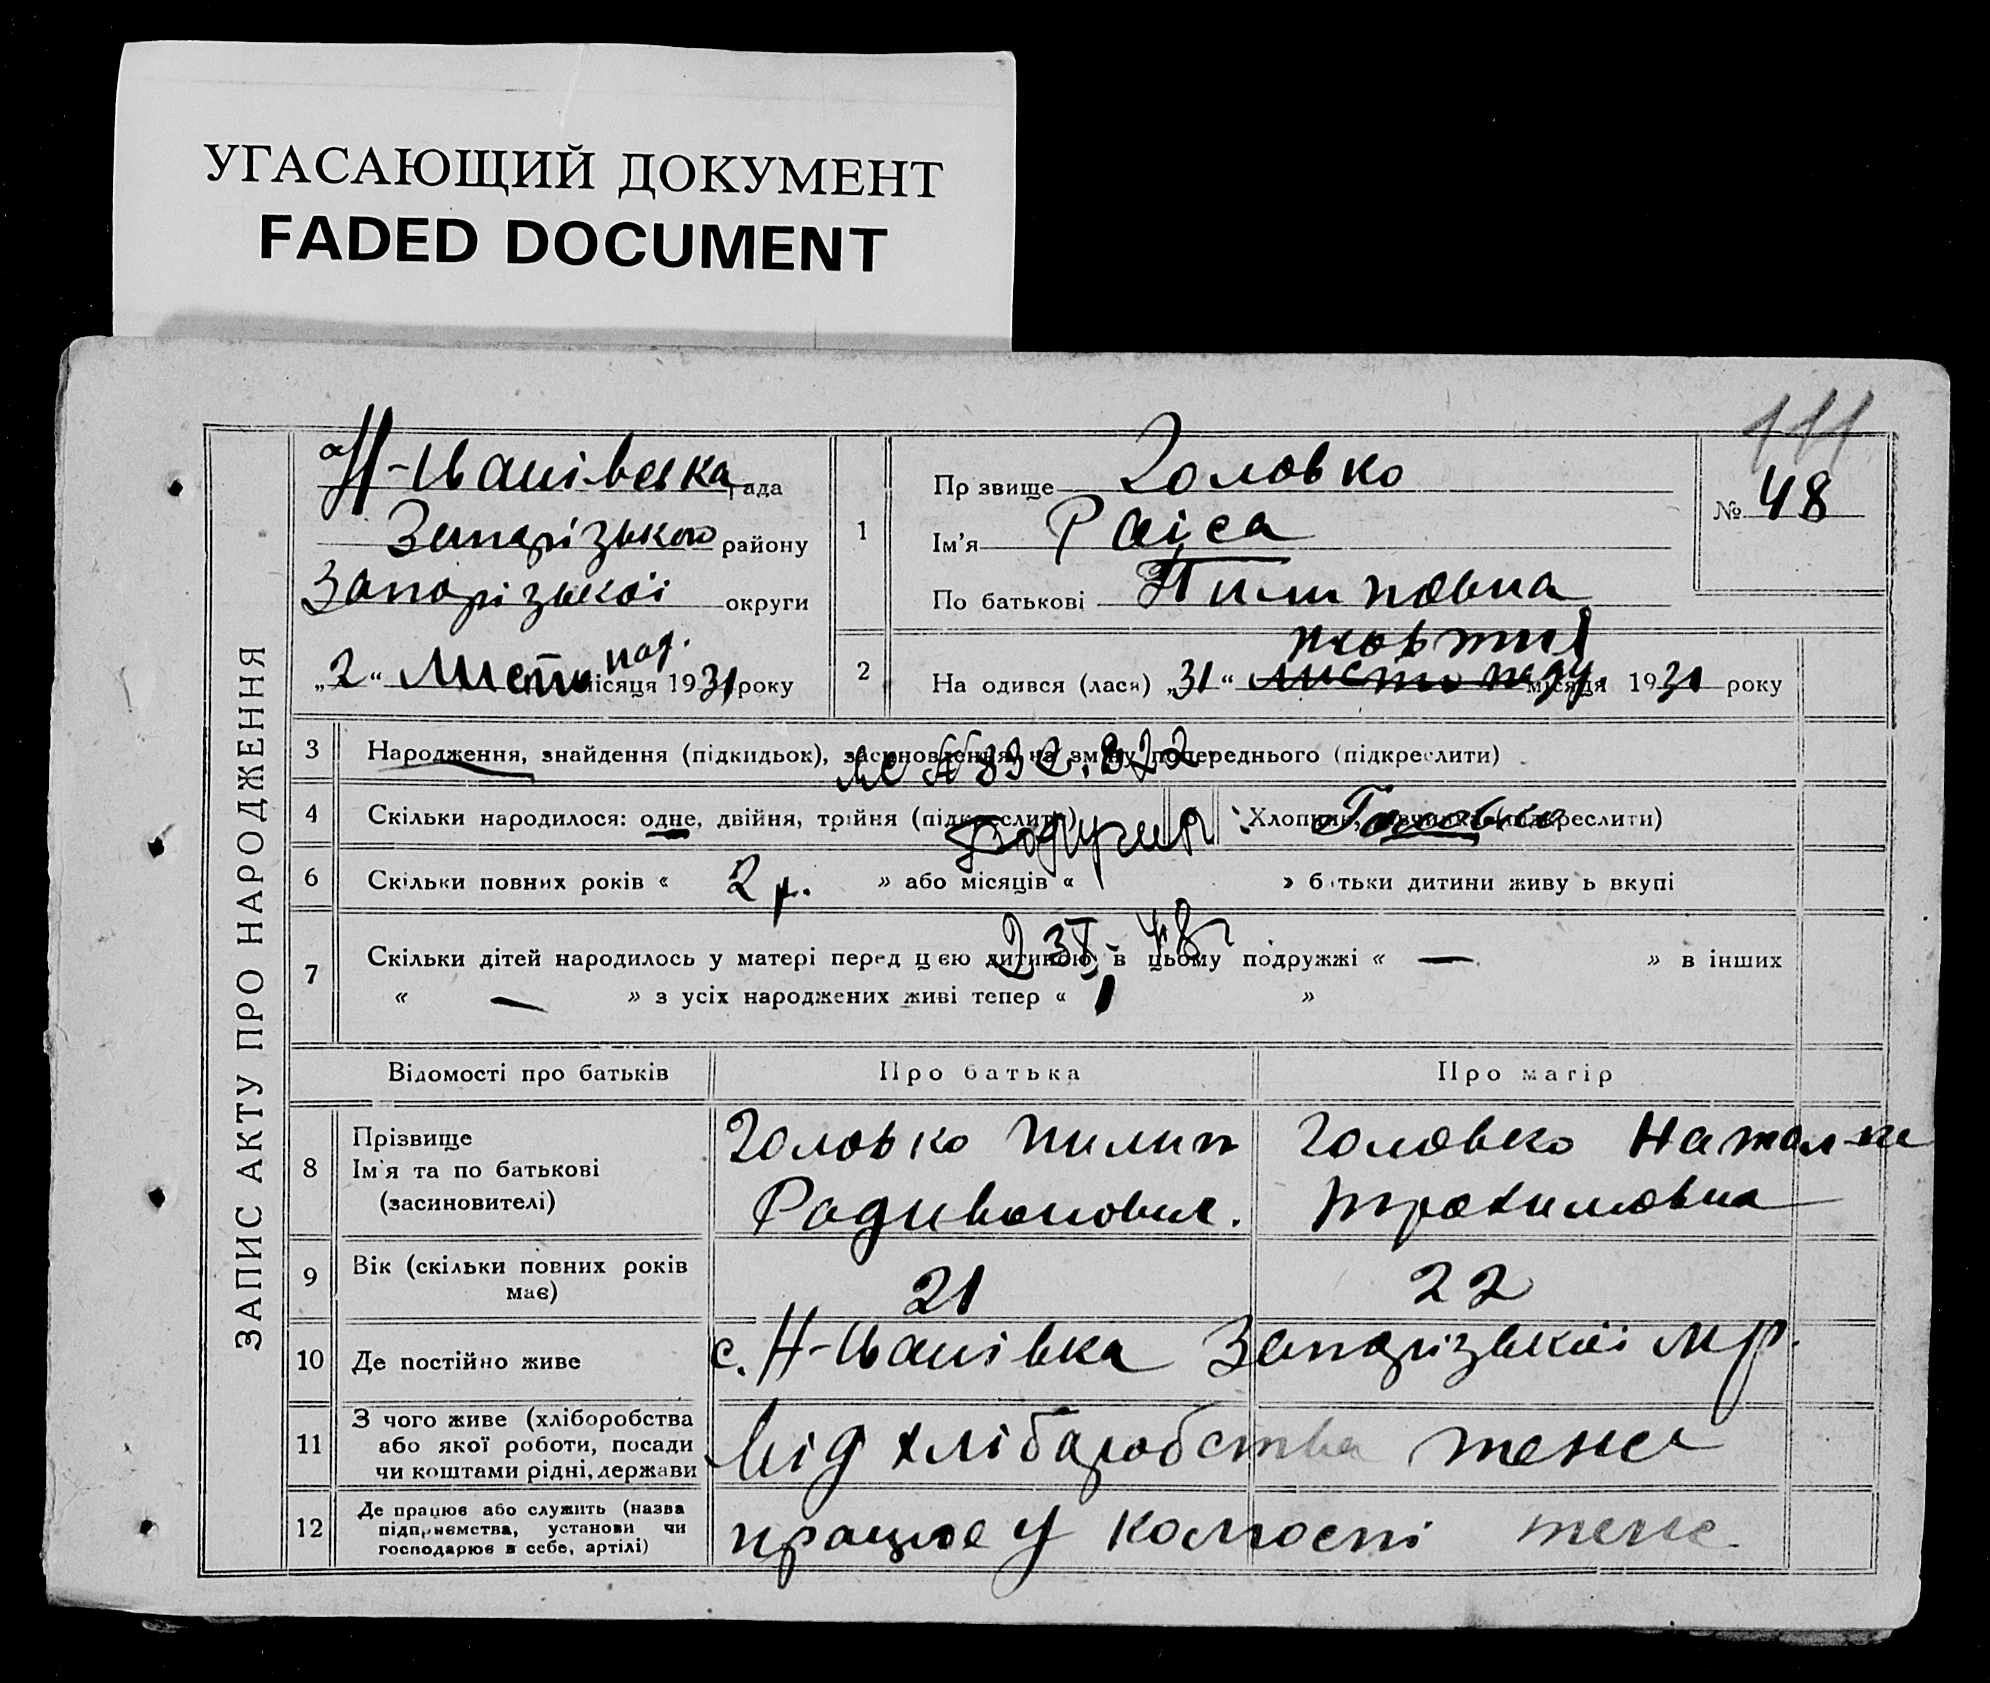 УГАСАЮЩИЙ ДОКУМЕНТ
FADED DOCUMENT
111
ЗАПИС АКТУ ПРО НАРОДЖЕННЯ
Н-Іванівська рада
Запорізького району
Запорізької округи
„2“ Листопад. місяця 1931 року
1
Прізвище Головко
Ім'я Раіса
По батькові Пилиповна
№ 48
2
На одився (лася) „31“ жовтня листопаду місяця 1931 року
3 Народження, знайдення (підкидьок), засиновлення, на зміну попереднього (підкреслити)
832.822
4 Скільки народилося: одне, двійня, трійня (підкреслити) Хлопчик, дівчинка (підкреслити)
6 Скільки повних років « 2 р. » або місяців « » батьки дитини живуть вкупі
7 Скільки дітей народилось у матері перед цією дитиною, в цьому подружжі « — » в інших
« — » з усіх народжених живі тепер « 1 »
Відомості про батьків Про батька Про матір
8 Прізвище Ім'я та по батькові (засиновителі)
Головко Пилип Радивонович.
Головко Наталя Трохимовна
9 Вік (скільки повних років має) 21 22
10 Де постійно живе с. Н-Іванівка Запорізької мр.
11 З чого живе (хліборобства або якої роботи, посади чи коштами рідні, держави
від хліборобства теже
12 Де працює або служить (назва підприємства, установи чи господарює в себе, артілі)
працює у колгоспі теже